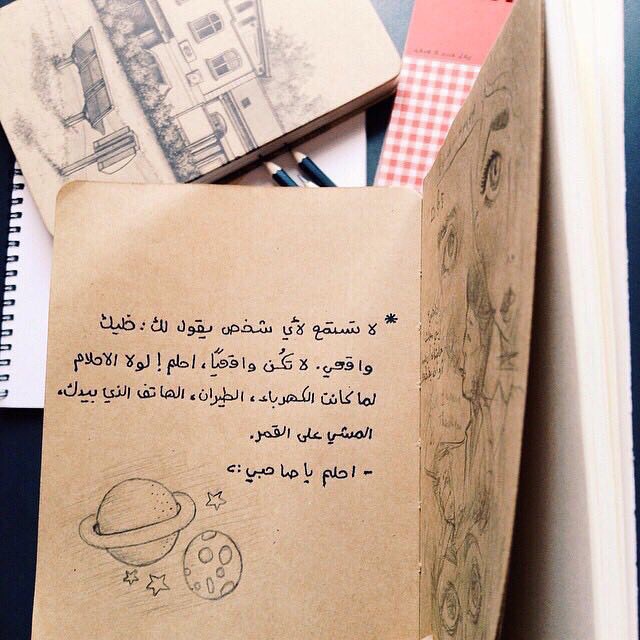 * لا تستمع لأي شخص يقول لك: خليك
واقعي. لا تكُن واقعيًا، احلم! لولا الاحلام
لما كانت الكهرباء، الطيران، الهاتف الذي بيدك،
المشي على القمر.
- احلم يا صاحبي :)